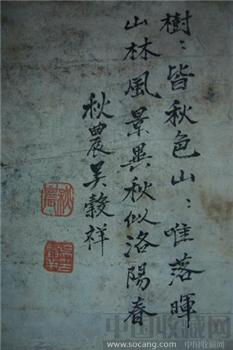 樹〻皆秋色山〻唯落暉
山林風景異秋似洛陽春
秋農吳穀祥
中国收藏网
www.socang.com
中国收藏网